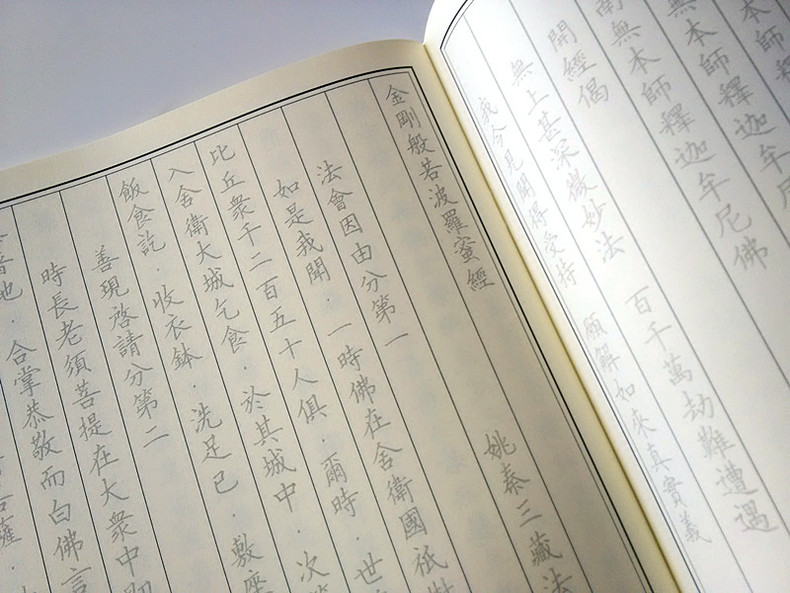 本師釋
無本師釋迦牟尼
南無本師釋迦牟尼佛
開經偈
無上甚深微妙法　百千萬劫難遭遇
我今見聞得受持　願解如來真實義
金剛般若波羅蜜經
姚秦三藏法
法會因由分第一
如是我聞．一時佛在舍衛國祇
比丘眾千二百五十人俱．爾時．世
入舍衛大城乞食．於其城中．次
飯食訖．收衣鉢．洗足已．敷座
善現啓請分第二
時長老須菩提在大眾中即
地．合掌恭敬而白佛言
薩．